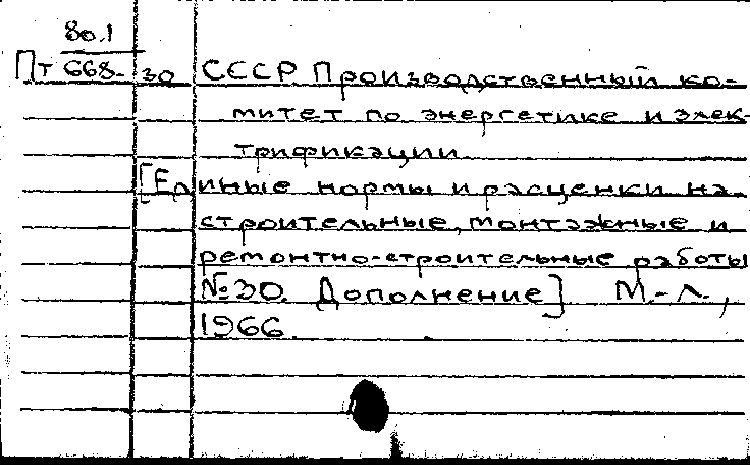 80.1
Пт 668- 30 СССР Производственный ко-
митет по энергетике и элек-
трификации
[Единые нормы и расценки на
строительные, монтажные и
ремонтно-строительные работы
№30. Дополнение] М.-Л.,
1966.